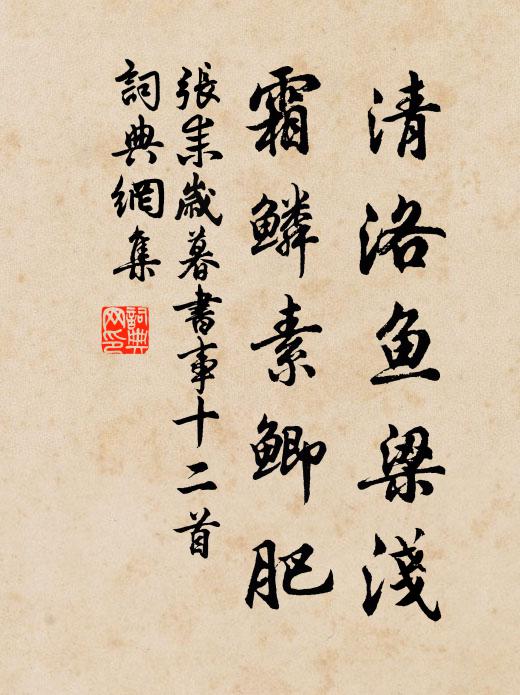 清洛鱼梁淺
霜鳞素鲫肥
張耒歲暮書事十二首
詞典網集
詞典網印